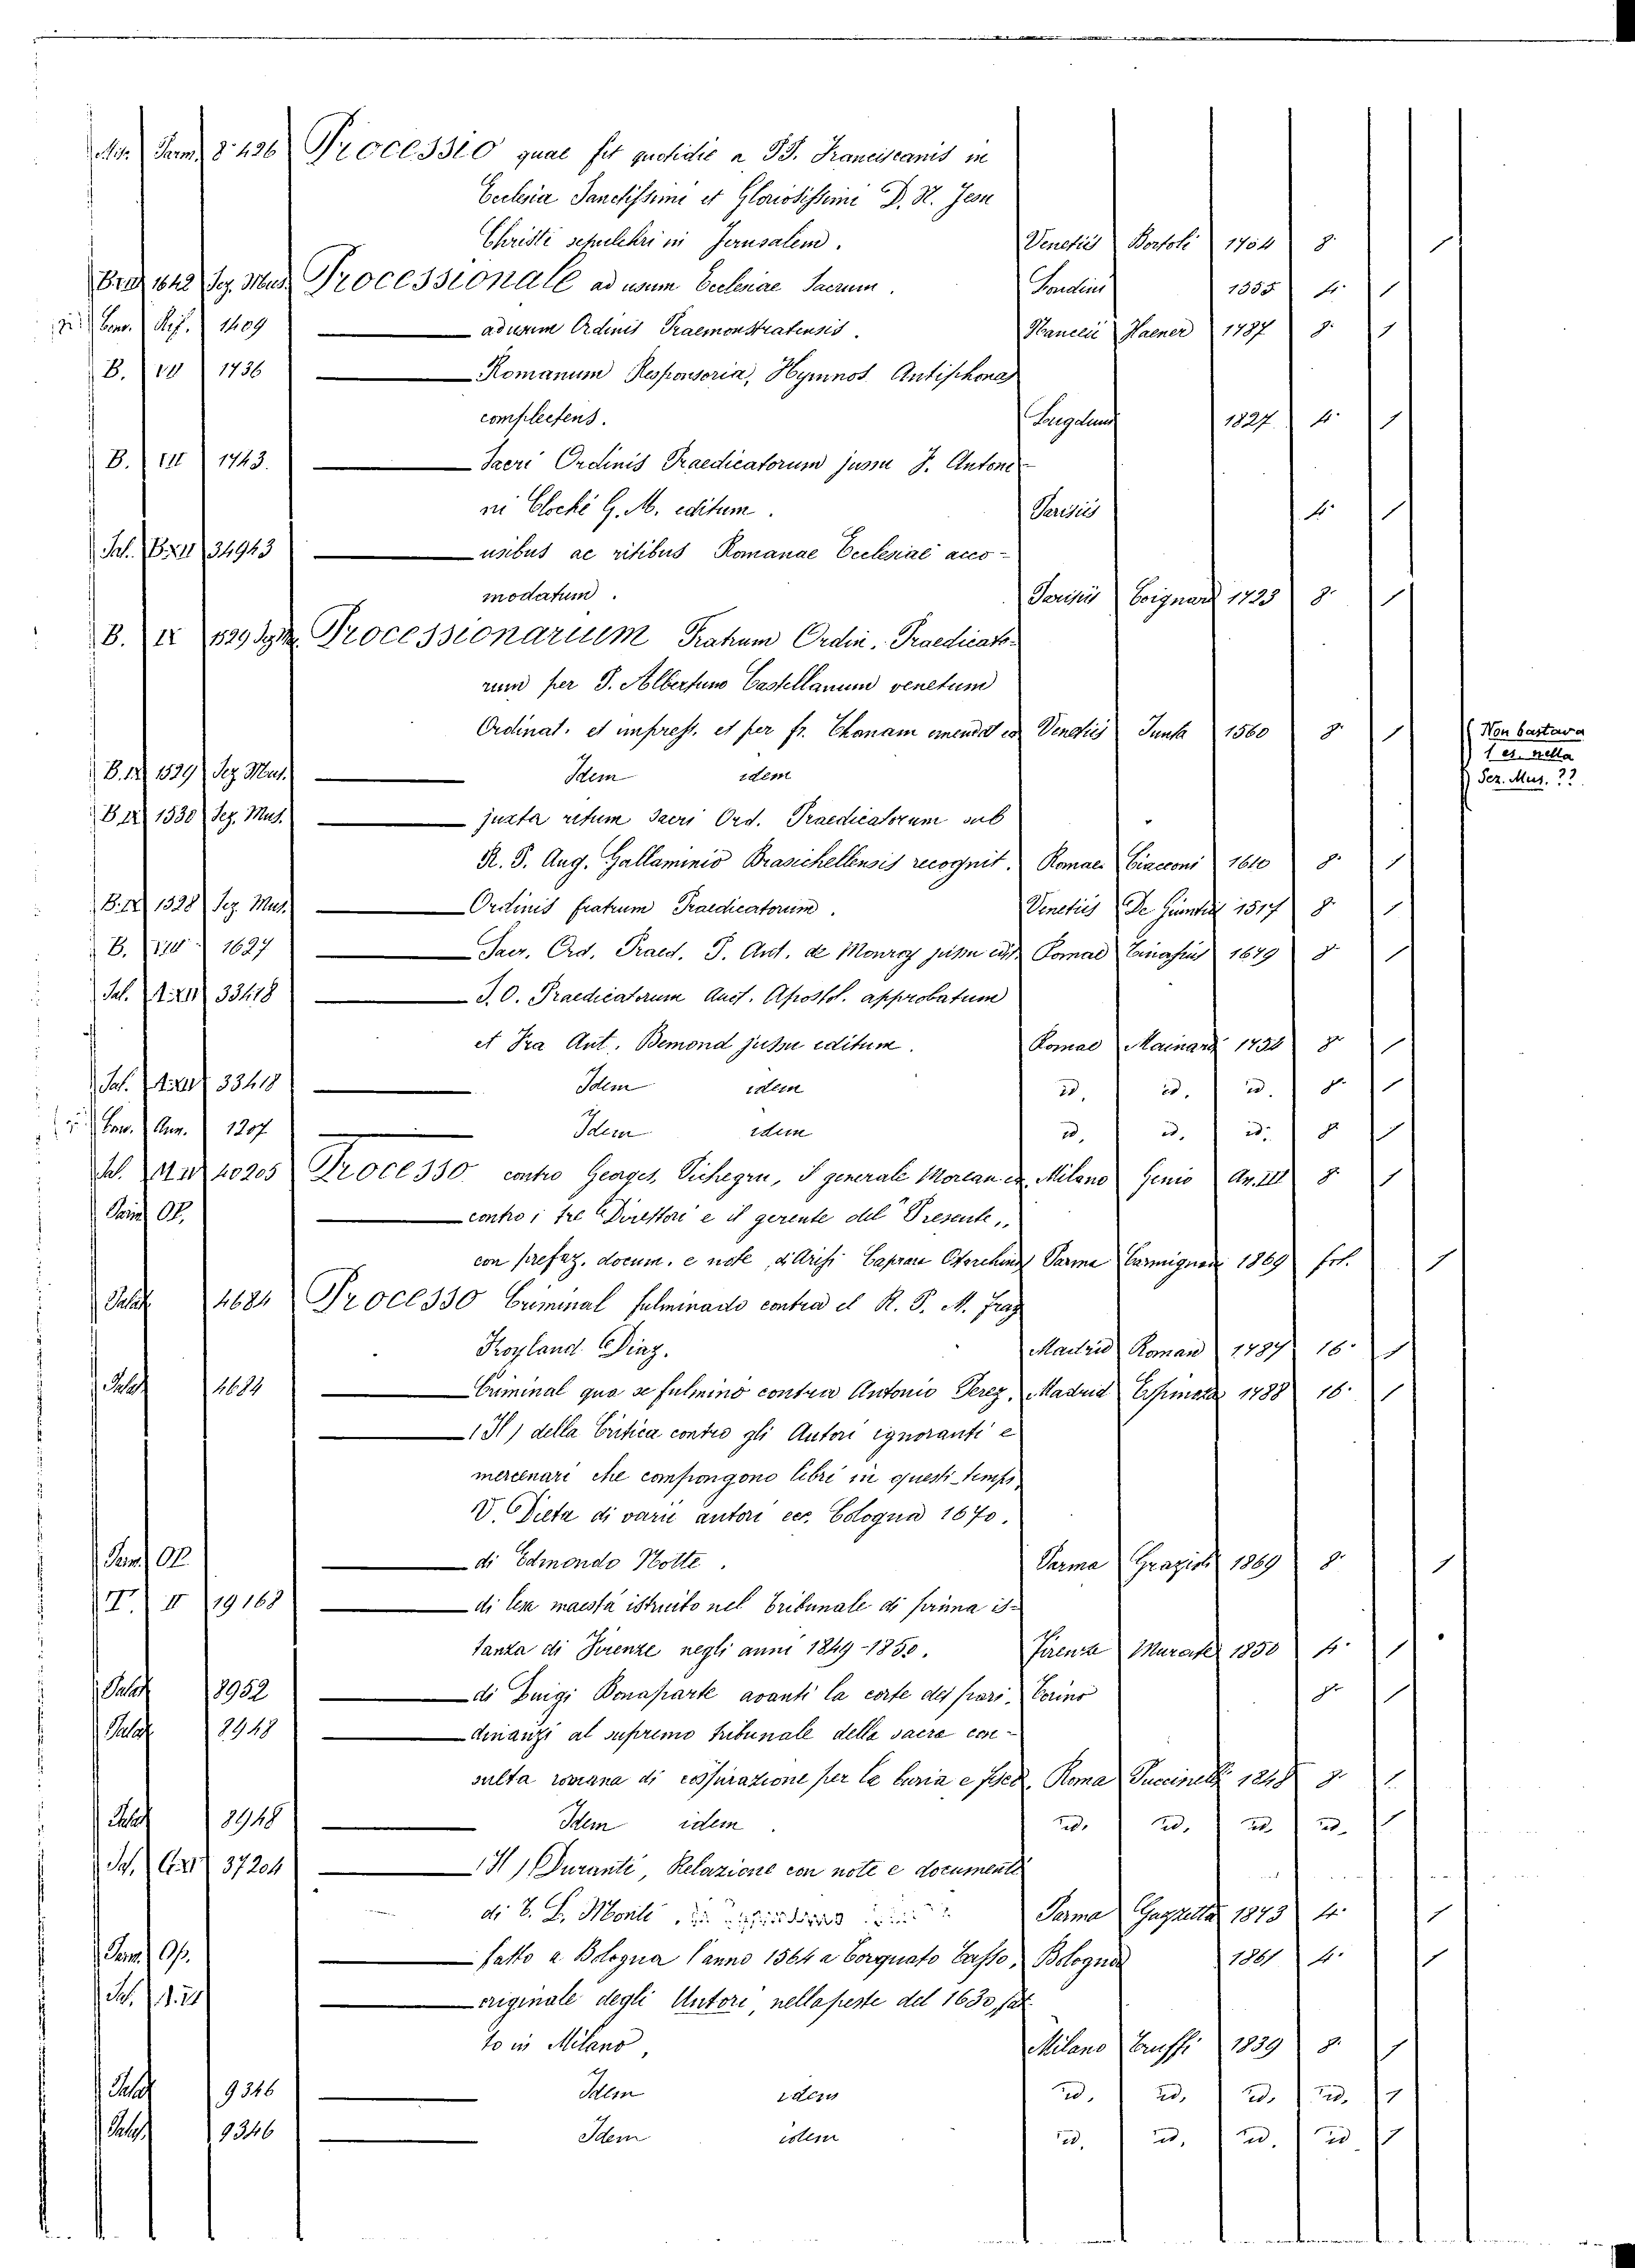 Parm. 8° 426 Processio quae fit quotidie a PP. Franciscanis in
Ecclesia Sanctissimi et Gloriosissimi D. N. Jesu
Christi sepulchri in Jerusalem. Venetiis Bortoli 1754 8° 1
1642 Sez. Mus. Processionale ad usum Ecclesiae Sarum. Londini 1555 4° 1
Rif. 1409 ad usum Ordinis Praemonstratensis. Nanceii Haener 1787 8° 1
B. VII 1736 Romanum Responsoria, Hymnos Antiphonas
complectens. Lugduni 1827 4° 1
B. VII 1743. Sacri Ordinis Praedicatorum jussu F. Antoni-
ni Cloche G. M. editum. Parisiis 4° 1
Pal. B.XII 34943 usibus ac ritibus Romanae Ecclesiae acco-
modatum. Parisiis Coignard 1723 8° 1
B. IX 1529 Sez. Mus. Processionarium Fratrum Ordin. Praedicato-
rum per F. Albertum Castellanum venetum
Ordinat. et impress. et per fr. emendat. Venetiis Junta 1560 8° 1 Non bastava
1 es. nella
B.IX 1529 Sez. Mus. Idem idem Sez. Mus. ??
B.IX 1530 Sez. Mus. juxta ritum Sacri Ord. Praedicatorum sub
R. P. Aug. Gallaminio Brasichellensis recognit. Romae Ciacconi 1610 8° 1
B.IX 1528 Sez. Mus. Ordinis fratrum Praedicatorum. Venetiis De Giuntis 1517 8° 1
B. 1627 Sacr. Ord. Praed. F. Ant. de Monroy jussu edit. Romae Tinassius 1679 8° 1
Pal. A.XII 33418 S. O. Praedicatorum Auct. Apostol. approbatum
et Fra Ant. Bremond jussu editum. Romae Mainardi 8° 1
Pal. A.XII 33418 Idem idem id. id. id. 8° 1
1207 Idem idem id. id. id. 8° 1
40205 Processo contro Georges, Pichegru, il generale Moreau ec. Milano Genio An.III 8° 1
Parm. Op. contro i tre Direttori e il gerente del "Presente"
con prefaz. docum. e note di Arisi Caprara Parma Carmignani 1869 fol. 1
Palat. 4684 Processo Criminal fulminado contra el R. P. M. Fray
Froyland Diaz. Madrid Roman 1787 16° 1
Palat. 4684 Criminal que se fulminò contra Antonio Perez. Madrid Espinosa 1788 16° 1
(Il) della Critica contro gli Autori ignoranti e
mercenari che compongono libri in questi tempi
V. Dieta di varii autori ecc. Cologna 1670.
Parm. Op. di Edmondo Notte. Parma Grazioli 1869 8° 1
T. II 19168 di lesa maestà istruito nel Tribunale di prima is-
tanza di Firenze negli anni 1849-1850. Firenze Murate 1850 4° 1
Palat. 8952 di Luigi Bonaparte avanti la corte dei pari. Torino 8° 1
Palat. 8948 dinanzi al supremo tribunale della sacra con-
sulta romana di cospirazione per la Puccinelli 1848 8° 1
Palat. 8948 Idem idem. id. id. id. id. 1
Pal. 37204 (Il) Duranti, Relazione con note e documenti
di Parma Gazzetta 1873 4° 1
Parm. Op. fatto a Bologna l'anno 1564 a Torquato Tasso, Bologna 1861 4° 1
originale degli Untori, nella peste del 1630, fat-
to in Milano, Milano Truffi 1839 8° 1
Palat. 9346 Idem idem id. id. id. id. 1
Palat. 9346 Idem idem id. id. id. id 1